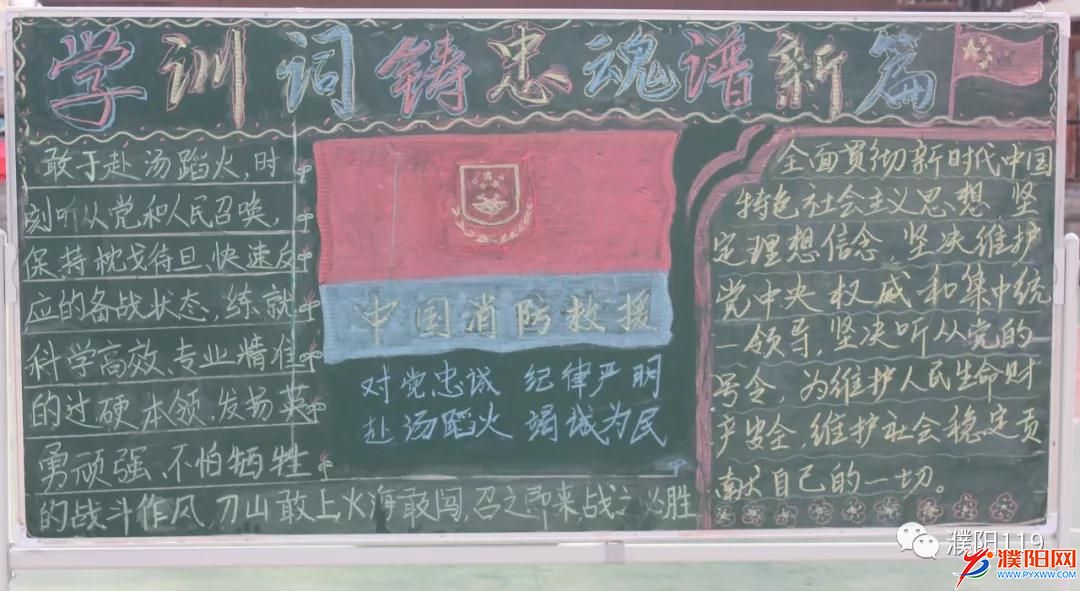 学训词铸忠魂谱新篇
敢于赴汤蹈火,时
刻听从党和人民召唤,
保持枕戈待旦、快速反
应的备战状态,练就
科学高效、专业精准
的过硬本领,发扬英
勇顽强、不怕牺牲
的战斗作风,刀山敢上,火海敢闯,召之即来,战之必胜
中国消防救援
对党忠诚 纪律严明
赴汤蹈火 竭诚为民
全面贯彻新时代中国
特色社会主义思想,坚
定理想信念,坚决维护
党中央权威和集中统
一领导,坚决听从党的
号令,为维护人民生命财
产安全,维护社会稳定贡
献自己的一切。
濮阳119
濮阳网
WWW.PYXWW.COM